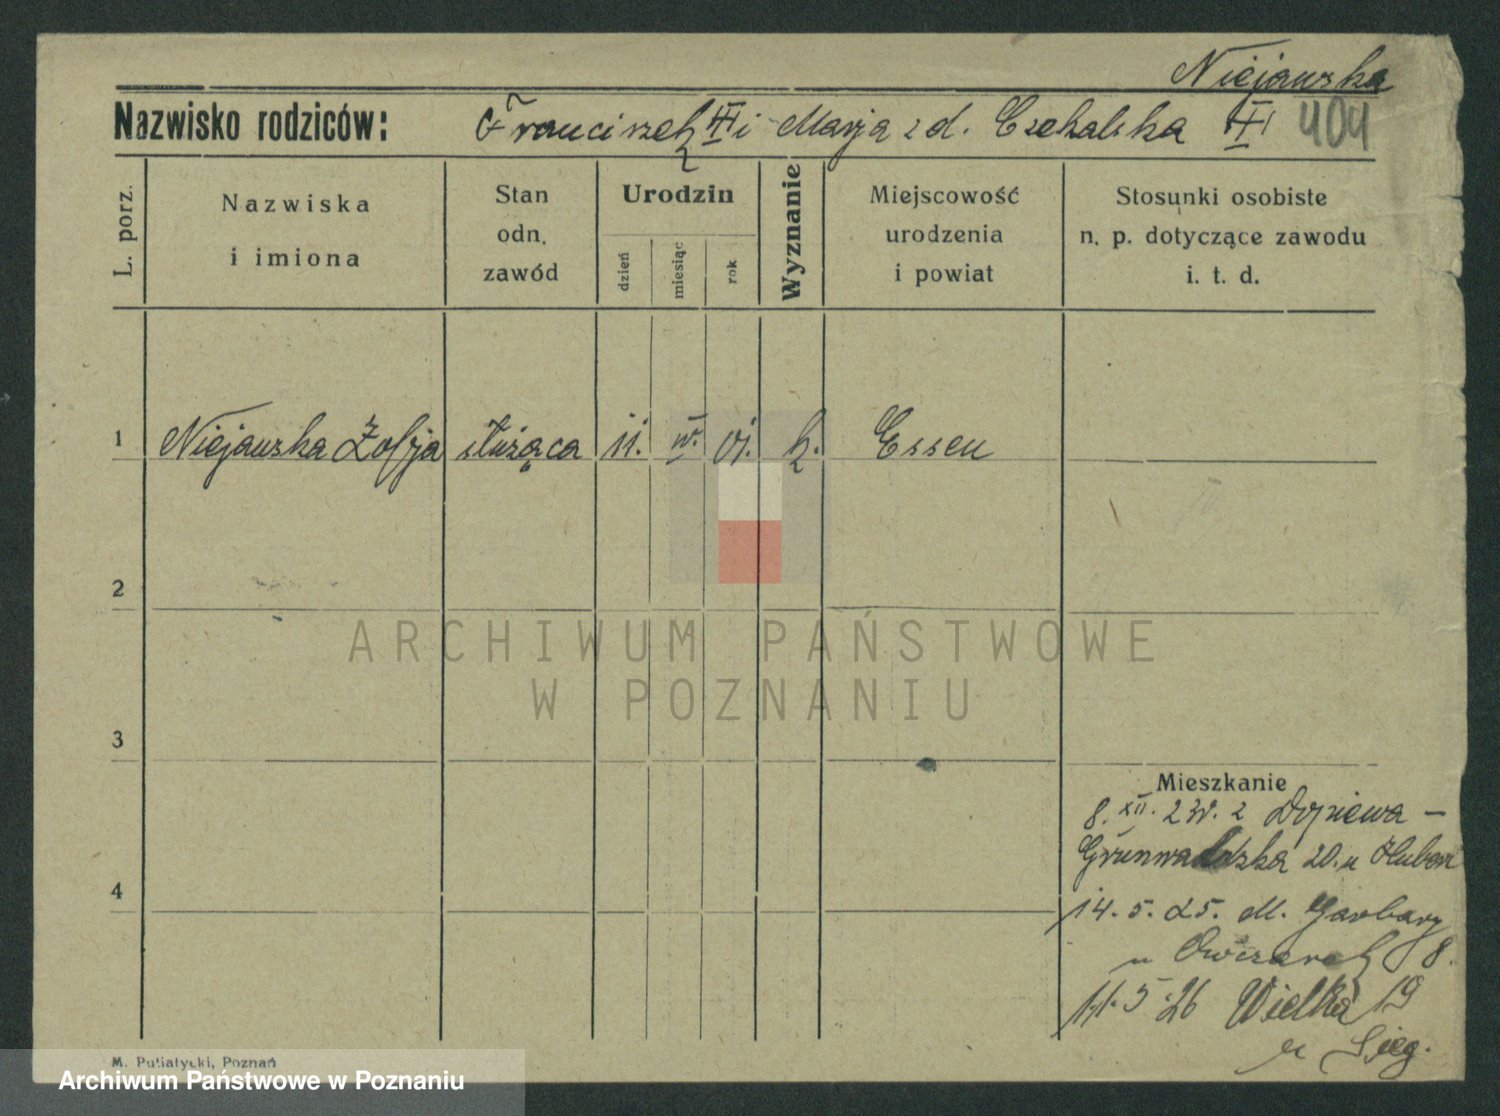 Niejawska
Nazwisko rodziców: Franciszek i Marja z d. Czekalska 404
L. porz.
Nazwiska
i imiona
Stan
odn.
zawód
Urodzin
dzień
miesiąc
rok
Wyznanie
Miejscowość
urodzenia
i powiat
Stosunki osobiste
n. p. dotyczące zawodu
i. t. d.
1 Niejawska Zofja służąca 11. IV. 01. k. Essen
2
ARCHIWUM PAŃSTWOWE
W POZNANIU
3
Mieszkanie
8. XII. 23. z Dopiewa –
Grunwaldzka 20. u
4
14. 5. 25. M. Garbary
u Owczarek 8.
11. 5. 26 Wielka 19
u
M. Putiatycki, Poznań
Archiwum Państwowe w Poznaniu